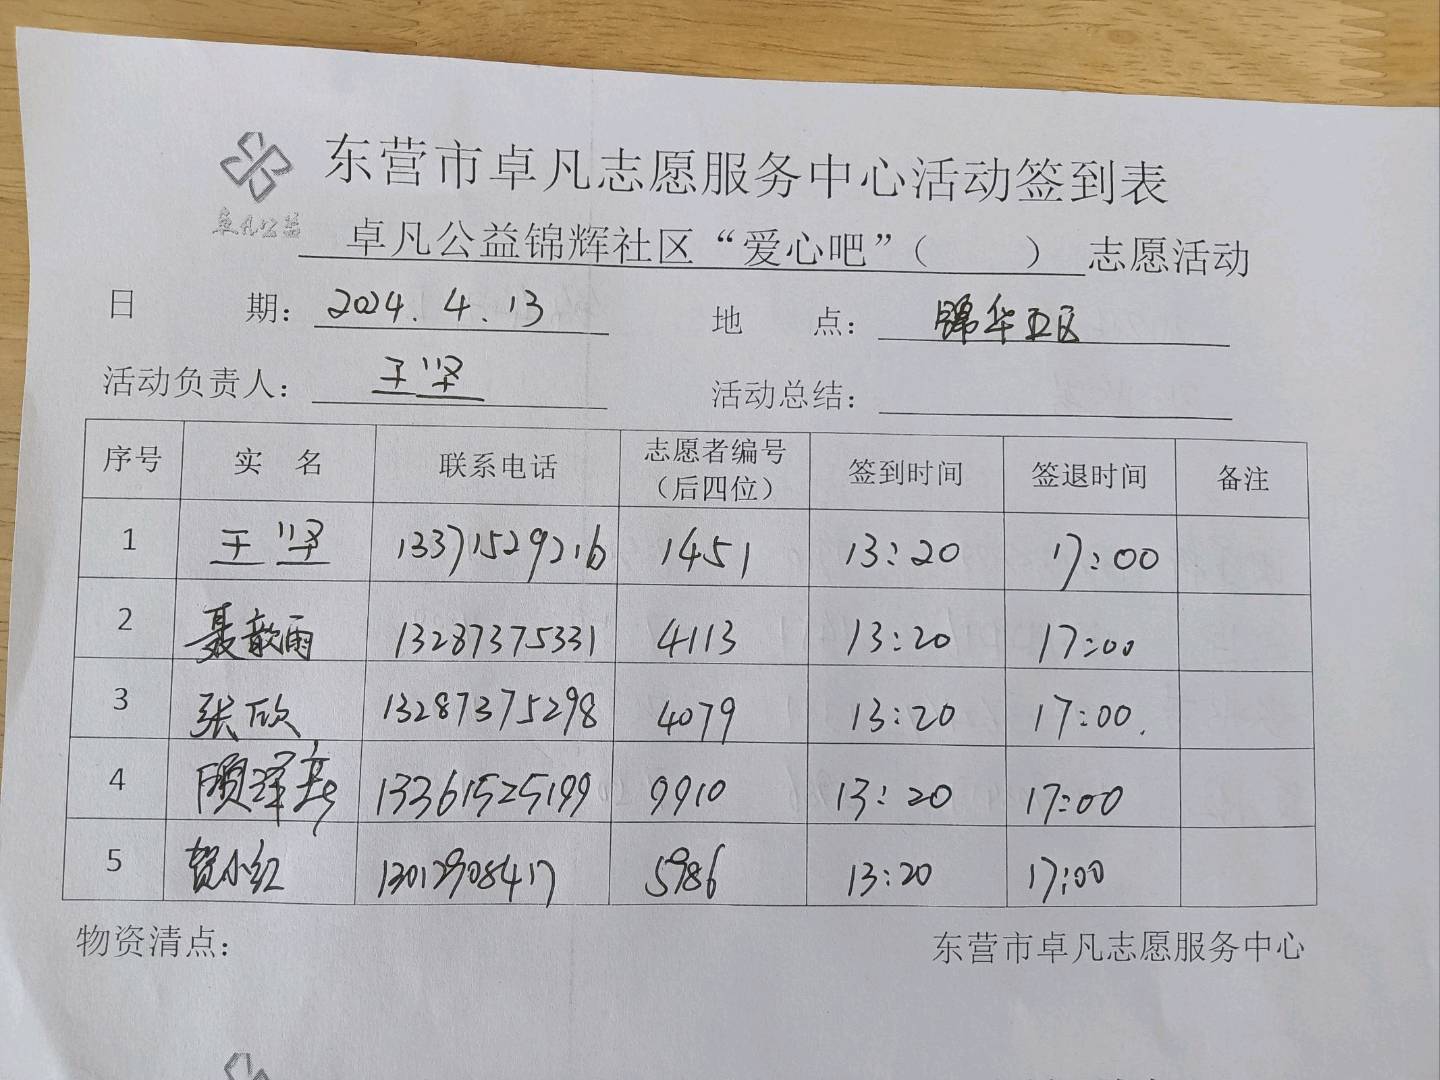 东营市卓凡志愿服务中心活动签到表
卓凡公益
卓凡公益锦辉社区“爱心吧”（ ）志愿活动
日 期： 2024.4.13 地 点： 锦华五区
活动负责人： 王坚 活动总结：
序号 实 名 联系电话 志愿者编号（后四位） 签到时间 签退时间 备注
1 王坚 13371529216 1451 13:20 17:00
2 聂歆雨 13287375331 4113 13:20 17:00
3 张欣 13287375298 4079 13:20 17:00.
4 13361525199 9910 13:20 17:00
5 贺小红 13012908417 5986 13:20 17:00
物资清点： 东营市卓凡志愿服务中心